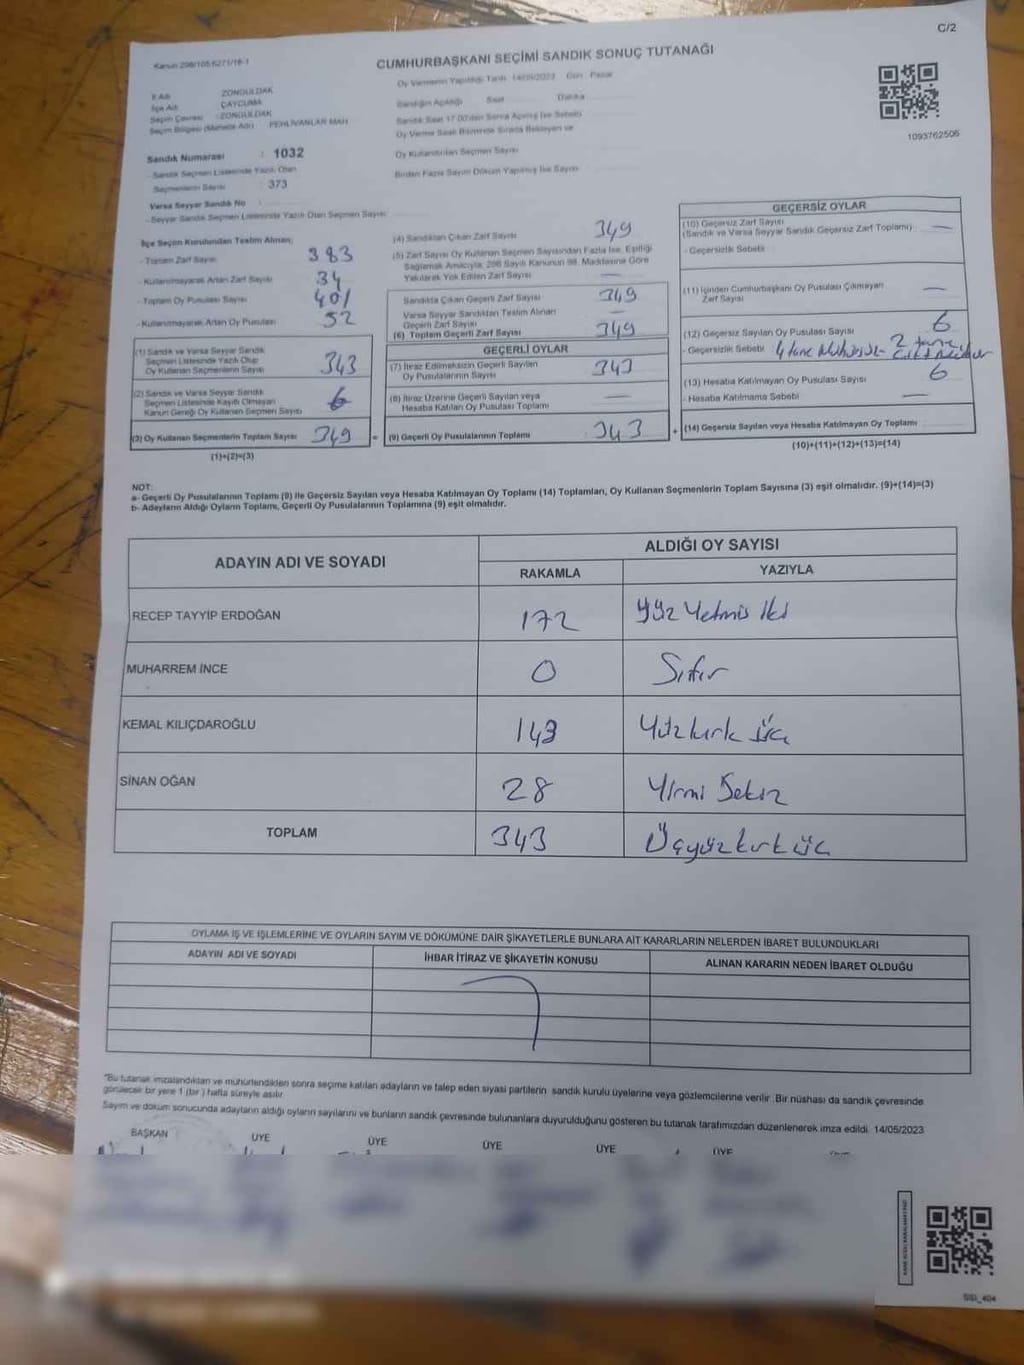 C/2
Kanun 298/105 6271/16-1
CUMHURBAŞKANI SEÇİMİ SANDIK SONUÇ TUTANAĞI
Oy Vermenin Yapıldığı Tarih 14/05/2023 Gün Pazar
İl Adı ZONGULDAK
İlçe Adı ÇAYCUMA
Seçim Çevresi : ZONGULDAK
Seçim Bölgesi (Mahalle Adı) PEHLİVANLAR MAH
Sandığın Açıldığı Saat Dakika
Sandık Saat 17.00'den Sonra Açılmış İse Sebebi
Oy Verme Saati Bitiminde Sırada Bekleyen ve
Oy Kullandırılan Seçmen Sayısı
Birden Fazla Sayım Döküm Yapılmış İse Sayısı
1093762506
Sandık Numarası : 1032
- Sandık Seçmen Listesinde Yazılı Olan
Seçmenlerin Sayısı : 373
Varsa Seyyar Sandık No
- Seyyar Sandık Seçmen Listesinde Yazılı Olan Seçmen Sayısı
İlçe Seçim Kurulundan Teslim Alınan;
- Toplam Zarf Sayısı 383
- Kullanılmayarak Artan Zarf Sayısı 34
- Toplam Oy Pusulası Sayısı 401
- Kullanılmayarak Artan Oy Pusulası 52
(1) Sandık ve Varsa Seyyar Sandık
Seçmen Listesinde Yazılı Olup
Oy Kullanan Seçmenlerin Sayısı 343
(2) Sandık ve Varsa Seyyar Sandık
Seçmen Listesinde Kayıtlı Olmayan
Kanun Gereği Oy Kullanan Seçmen Sayısı 6
(3) Oy Kullanan Seçmenlerin Toplam Sayısı 349
(1)+(2)=(3)
(4) Sandıktan Çıkan Zarf Sayısı 349
(5) Zarf Sayısı Oy Kullanan Seçmen Sayısından Fazla İse, Eşitliği
Sağlamak Amacıyla, 298 Sayılı Kanunun 98. Maddesine Göre
Yakılarak Yok Edilen Zarf Sayısı —
Sandıkta Çıkan Geçerli Zarf Sayısı 349
Varsa Seyyar Sandıktan Teslim Alınan
Geçerli Zarf Sayısı —
(6) Toplam Geçerli Zarf Sayısı 349
GEÇERLİ OYLAR
(7) İtiraz Edilmeksizin Geçerli Sayılan
Oy Pusulalarının Sayısı 343
(8) İtiraz Üzerine Geçerli Sayılan veya
Hesaba Katılan Oy Pusulası Toplamı —
= (9) Geçerli Oy Pusulalarının Toplamı 343
GEÇERSİZ OYLAR
(10) Geçersiz Zarf Sayısı
(Sandık ve Varsa Seyyar Sandık Geçersiz Zarf Toplamı) —
- Geçersizlik Sebebi
(11) İçinden Cumhurbaşkanı Oy Pusulası Çıkmayan
Zarf Sayısı —
(12) Geçersiz Sayılan Oy Pusulası Sayısı 6
- Geçersizlik Sebebi 4 tane 2 tane
(13) Hesaba Katılmayan Oy Pusulası Sayısı 6
- Hesaba Katılmama Sebebi —
+ (14) Geçersiz Sayılan veya Hesaba Katılmayan Oy Toplamı
(10)+(11)+(12)+(13)=(14)
NOT:
a- Geçerli Oy Pusulalarının Toplamı (9) ile Geçersiz Sayılan veya Hesaba Katılmayan Oy Toplamı (14) Toplamları, Oy Kullanan Seçmenlerin Toplam Sayısına (3) eşit olmalıdır. (9)+(14)=(3)
b- Adayların Aldığı Oyların Toplamı, Geçerli Oy Pusulalarının Toplamına (9) eşit olmalıdır.
ADAYIN ADI VE SOYADI
ALDIĞI OY SAYISI
RAKAMLA YAZIYLA
RECEP TAYYİP ERDOĞAN 172 Yüz Yetmiş İki
MUHARREM İNCE 0 Sıfır
KEMAL KILIÇDAROĞLU 143 Yüzkırk üç
SİNAN OĞAN 28 Yirmi Sekiz
TOPLAM 343 Üçyüzkırk üç
OYLAMA İŞ VE İŞLEMLERİNE VE OYLARIN SAYIM VE DÖKÜMÜNE DAİR ŞİKAYETLERLE BUNLARA AİT KARARLARIN NELERDEN İBARET BULUNDUKLARI
ADAYIN ADI VE SOYADI İHBAR İTİRAZ VE ŞİKAYETİN KONUSU ALINAN KARARIN NEDEN İBARET OLDUĞU
"Bu tutanak imzalandıktan ve mühürlendikten sonra seçime katılan adayların ve talep eden siyasi partilerin sandık kurulu üyelerine veya gözlemcilerine verilir. Bir nüshası da sandık çevresinde
görülecek bir yere 1 (bir) hafta süreyle asılır.
Sayım ve döküm sonucunda adayların aldığı oyların sayılarını ve bunların sandık çevresinde bulunanlara duyurulduğunu gösteren bu tutanak tarafımızdan düzenlenerek imza edildi. 14/05/2023
BAŞKAN ÜYE ÜYE ÜYE ÜYE ÜYE
SSI_404